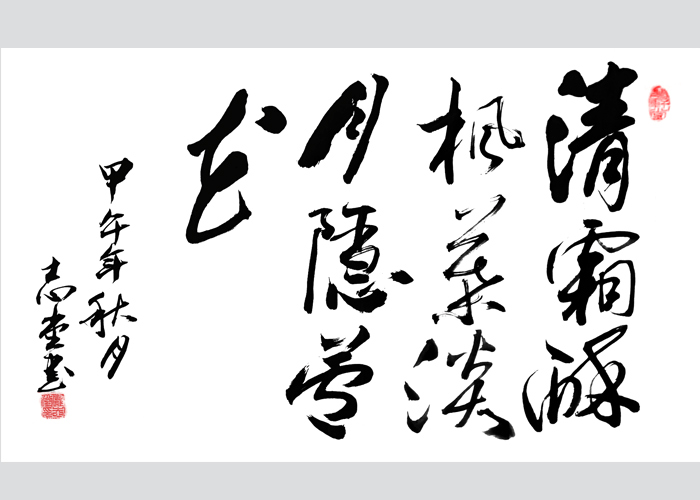 清霜醉
枫葉淡
月隱芦
花
甲午年秋月
志堂书